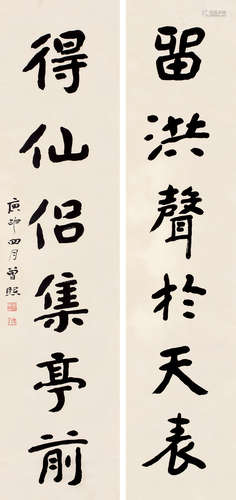 留洪聲於天表
得仙侶集亭前
庚卯四月曾熙